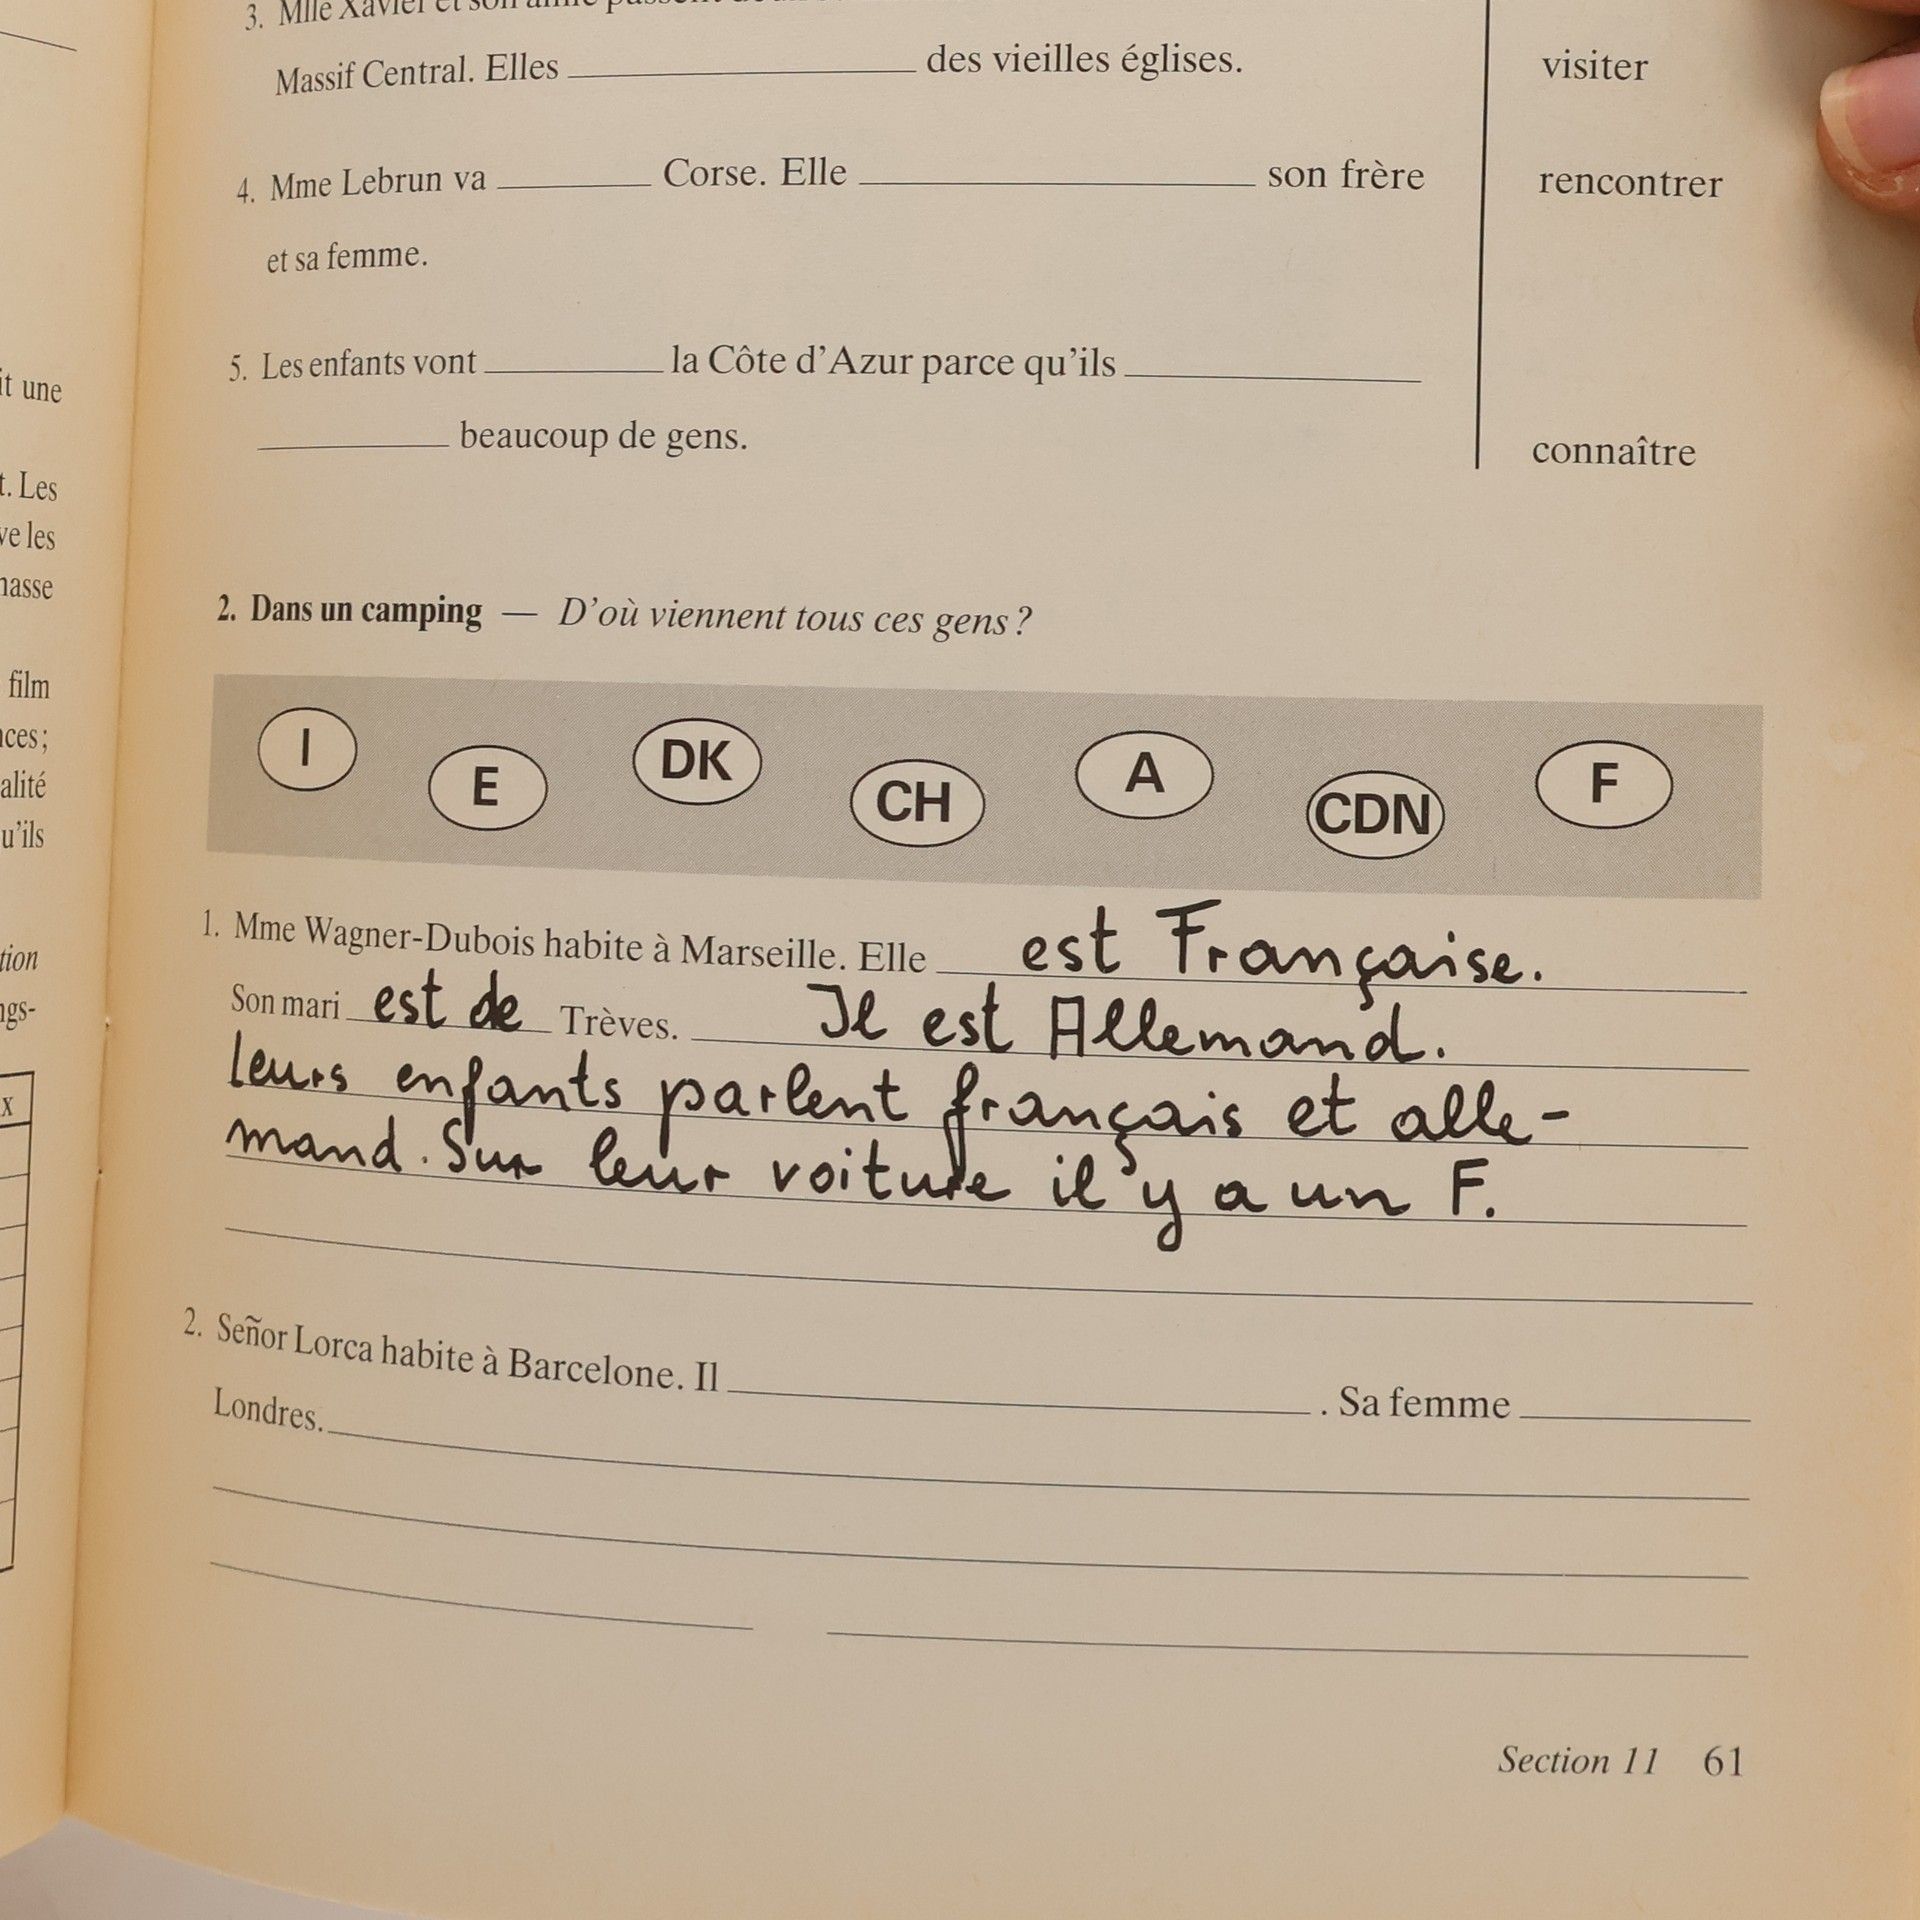 3. Mlle Xavier et son amie passent
Massif Central. Elles ____ des vieilles églises. visiter
4. Mme Lebrun va ____ Corse. Elle ____ son frère rencontrer
et sa femme.
5. Les enfants vont ____ la Côte d'Azur parce qu'ils ____
____ beaucoup de gens. connaître
it une
t. Les
ve les
film
alité
u'ils
tion
x
2. Dans un camping — D'où viennent tous ces gens ?
I E DK CH A CDN F
1. Mme Wagner-Dubois habite à Marseille. Elle est Française.
Son mari est de Trèves. Il est Allemand.
leurs enfants parlent français et alle-
mand. Sur leur voiture il y a un F.
2. Señor Lorca habite à Barcelone. Il ____ . Sa femme ____
Londres. ____
Section 11 61